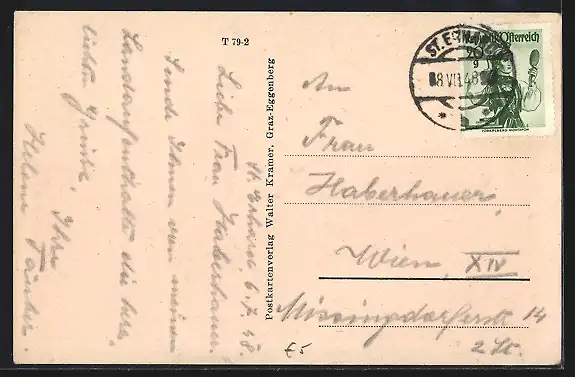 T 79-2
St. Erhard 6.7.48.
Liebe Frau Haberhauer.
Sende Ihnen von meinem
Landaufenthalte die herz-
lichsten Grüße, Ihre
Helene
Postkartenverlag Walter Kramer, Graz-Eggenberg
ST. E
8.VII.48
9
Österreich
An
Frau
Haberhauer
Wien, XIV
Missingdorferstr. 14
2. St.
£5